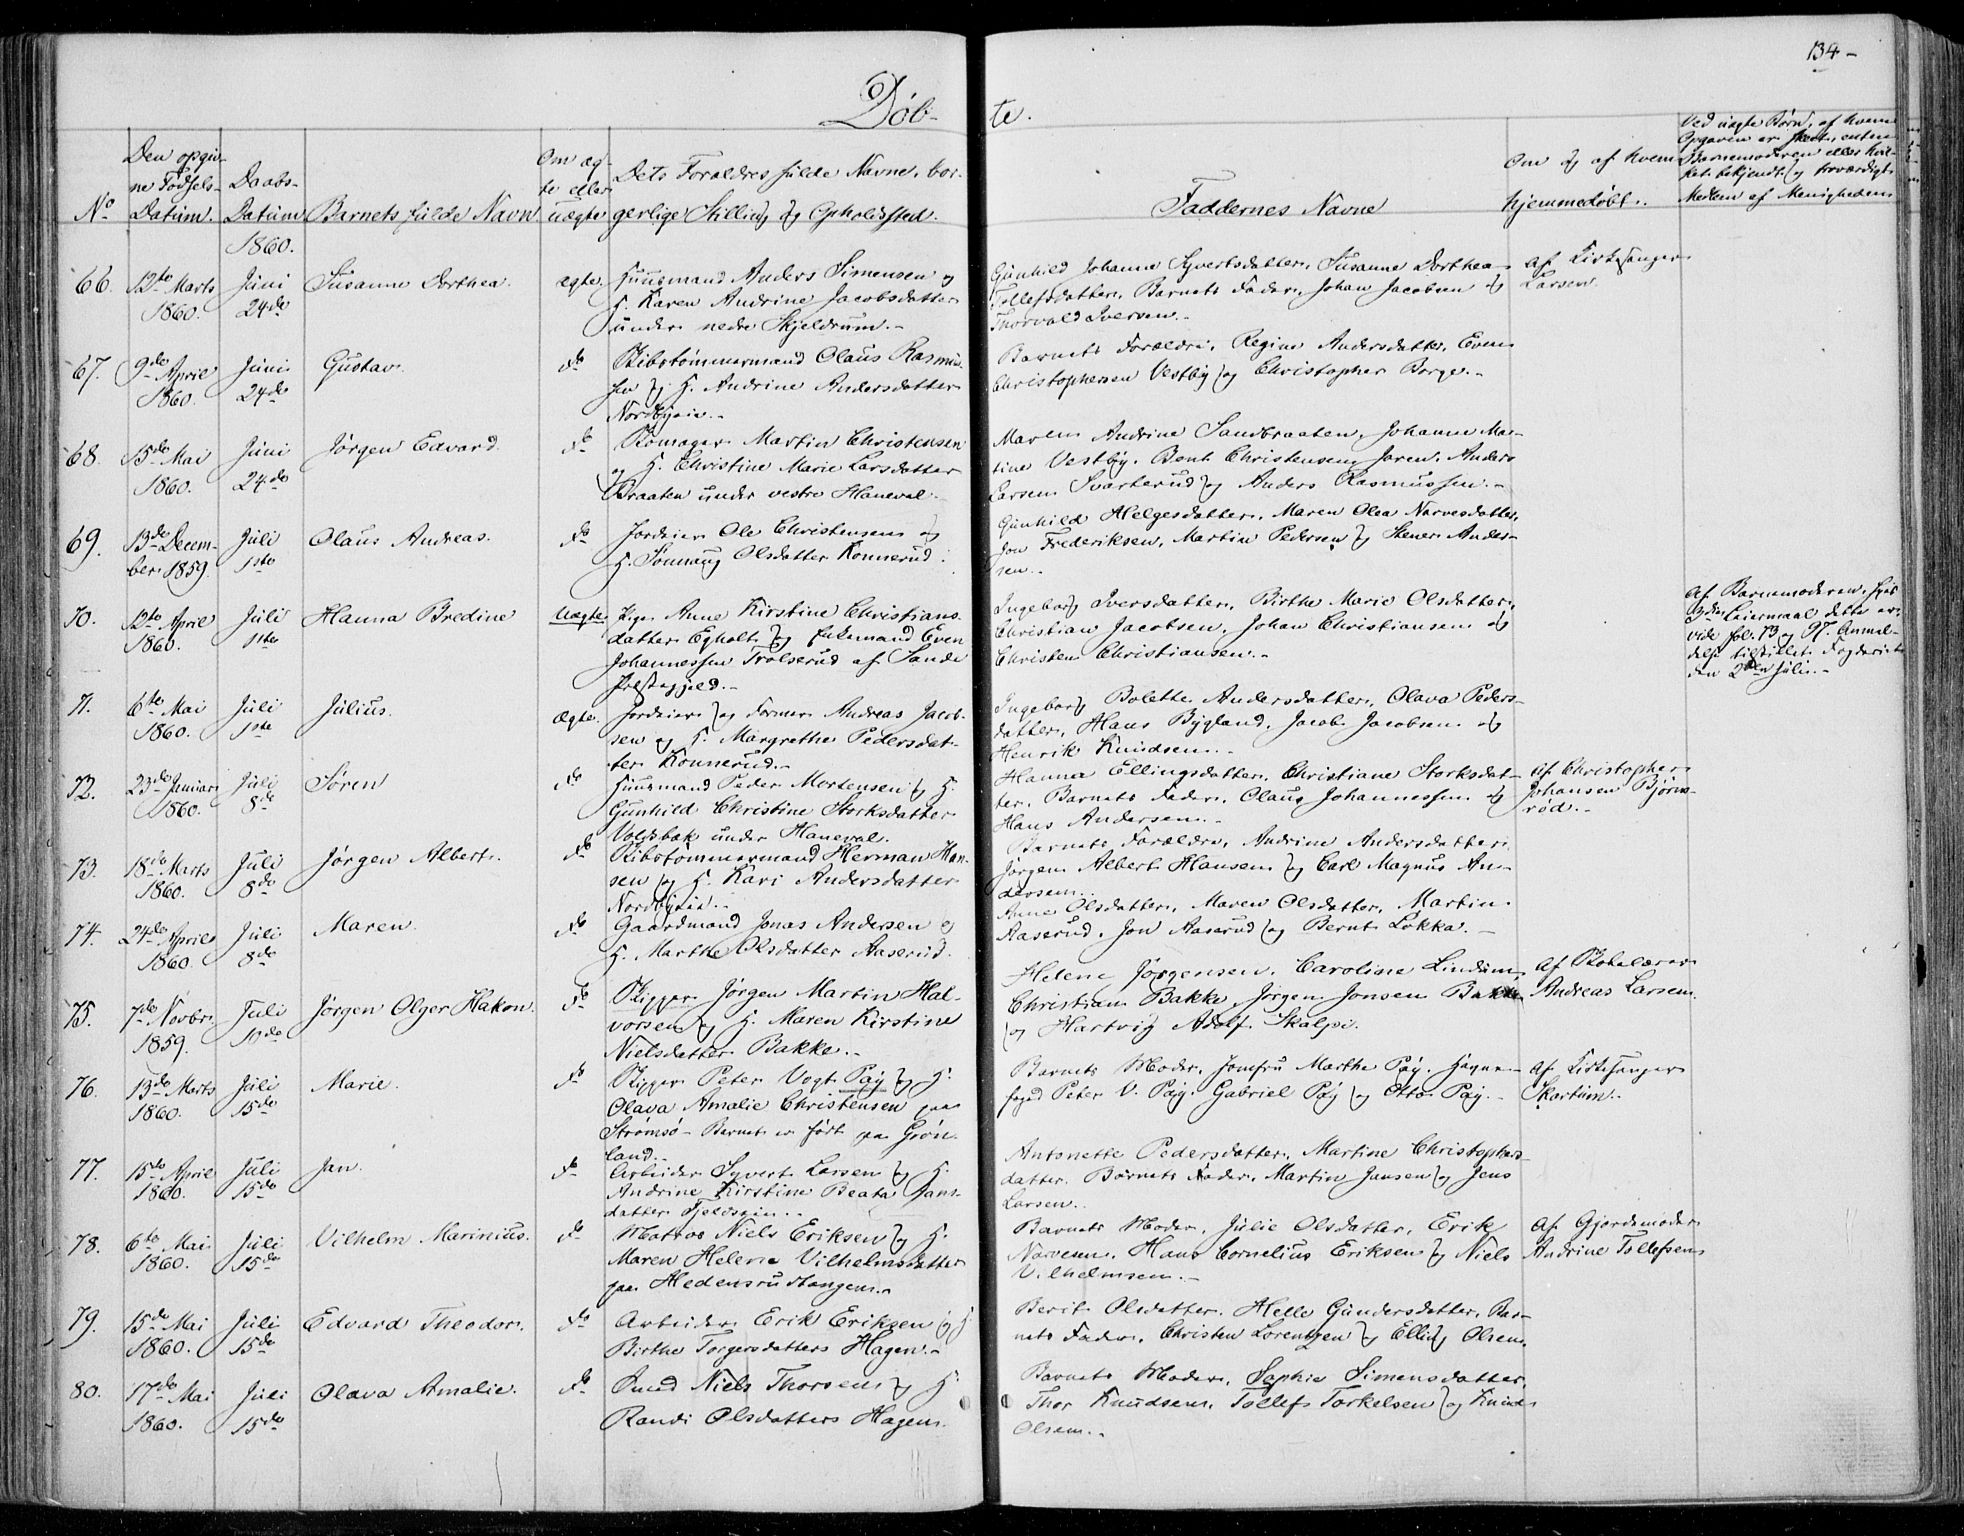 134-
Døb-
te.
No
Den opgiv-
ne Fødsels-
Datum.
Daabs-
Datum
Barnets fulde Navn
Om æg-
te eller
uægte
Dets Forældres fulde Navne, bor-
gerlige Stilling og Opholdssted.
Faddernes Navne
Om og af hvem
hjemmedøbt.
Ved uægte Børn, af hvem
Opgaven er skeet, enten
Barnemoderen eller
bekjendt og troværdigt
Medlem af Menigheden
1860.
66.
12te Marts
1860.
Juni
24de
Susanne Dorthea.
ægte.
Huusmand Anders Simensen og
H. Karen Andrine Jacobsdatter
under nedre Skjeldrum.-
Gunhild Johanne Syvertsdatter, Susanne Dorthea
Tollefsdatter, Barnets Fader, Johan Jacobsen og
Thorvald Iversen.-
Af Kirkesanger
Larsen.
67.
9de April
1860.
Juni
24de
Gustav.
do
Skibstømmermand Claus Rasmus-
sen og H. Andrine Andersdatter
Barnets Forældre, Regine Andersdatter, Even
Christophersen Vestby og Christopher Borge.-
68.
15de Mai
1860.
Juni
24de
Jørgen Edvard.
do
Skomager Martin Christensen
og H. Christine Marie Larsdatter
Braaten under vestre Haneval.
Maren Andrine Sandbraaten, Johanne Mar-
tine Vestby, Bent Christensen Jaren, Anders
Larsen Svarterud og Anders Rasmussen.-
69.
13de Decem-
ber 1859.
Juli
1ste
Olaus Andreas.
do
Jordeier Ole Christensen og
H. Sønnaug Olsdatter Konnerud.
Gunhild Helgesdatter, Maren Olea Narvesdatter,
Jon Frederiksen, Martin Pedersen og Stener Ander-
sen.-
70.
12te April
1860.
Juli
1ste
Hanna Bredine
Uægte
Pige Anne Kirstine Christians-
datter Egholt og Enkemand Even
Johannessen Trolserud af Sande
Præstegjeld.-
Ingeborg Iversdatter, Birthe Marie Olsdatter,
Christian Jacobsen, Johan Christiansen og
Christen Christiansen.-
Af Barnemoderen,
3die Leiermaal dette er,
vide fol. 73 og 97. Anmel-
delse tilstillet Fogderiet
den 2den Juli.-
71.
6te Mai
1860.
Juli
1ste
Julius.
Ægte.
Jordeier og Former Andreas Jacob-
sen og H. Margrethe Pedersdat-
ter Konnerud.-
Ingeborg Bolette Andersdatter, Olava Peders-
datter, Hans Bygland, Jacob Jacobsen og
Henrik Knudsen.-
72.
23de Januar
1860.
Juli
8de
Søren
do
Huusmand Peder Mortensen og H.
Gunhild Christine Storksdatter
Voldsbæk under Haneval.
Hanna Ellingsdatter, Christiane Storksdat-
ter, Barnets Fader, Claus Johannessen og
Hans Andersen.-
Af Christopher
Johansen Bjørn-
rød.-
73.
18de Marts
1860.
Juli
8de
Jørgen Albert.
do
Skibstømmermand Herman Han-
sen og H. Kari Andersdatter
Barnets Forældre, Andrine Andersdatter,
Jørgen Albert Hansen og Carl Magnus An-
dersen.
74.
24de April
1860.
Juli
8de
Maren.
do
Gaardmand Jonas Andersen og
H. Marthe Olsdatter Aaserud.
Anne Olsdatter, Maren Olsdatter, Martin
Aaserud, Jon Aaserud og Bernt Løkka.-
75.
7de Novbr.
1859.
Juli
10de
Jørgen Olger Hakon.
do
Skipper Jørgen Martin Hal-
vorsen og H. Maren Kirstine
Nielsdatter Bakke.-
Helene Jørgensen, Caroline Lindum,
Christian Bakke, Jørgen Jonsen Bakke
og Hartvig Adolf Skalpe.
Af Skolelærer
Andreas Larsen.
76.
13de Marts
1860.
Juli
15de
Marie.
do
Skipper Peter Vogt Pay og H.
Olava Amalie Christensen paa
Strømsø- Barnet er født paa Grøn-
land.-
Barnets Moder, Jomfru Marthe Pay, Havne-
foged Peter V. Pay, Gabriel Pay og Otto Pay.-
Af Kirkesanger
Skartum.
77.
15de April
1860.
Juli
15de
Jan.
do
Arbeider Syvert Larsen og H.
Andrine Kirstine Beata Jans-
datter
Antonette Pedersdatter, Martine Christophers-
datter, Barnets Fader, Martin Jansen og Jens
Larsen.
78.
6te Mai
1860.
Juli
15de
Vilhelm Marinius.
do
Matros Niels Eriksen og H.
Maren Helene Vilhelmsdatter
paa Hedensrudtangen.-
Barnets Moder, Julie Olsdatter, Erik
Narvesen, Hans Cornelius Eriksen og Niels
Vilhelmsen.-
Af Gjordemoder
Andrine Tollefsen
79.
15de Mai
1860.
Juli
15de
Edvard Theodor.
do
Arbeider Erik Eriksen og H.
Birthe Torgersdatter Hagen.-
Berit Olsdatter, Helle Gundersdatter, Bar-
nets Fader, Christen Lorentzen og Elling Olsen.
80.
17de Mai
1860.
Juli
15de
Olava Amalie.
do
Smed Niels Thorsen og H.
Randi Olsdatter Hagen.
Barnets Moder, Sophie Simensdatter,
Thor Knudsen, Tollef Torkelsen og Knud
Olsen.-